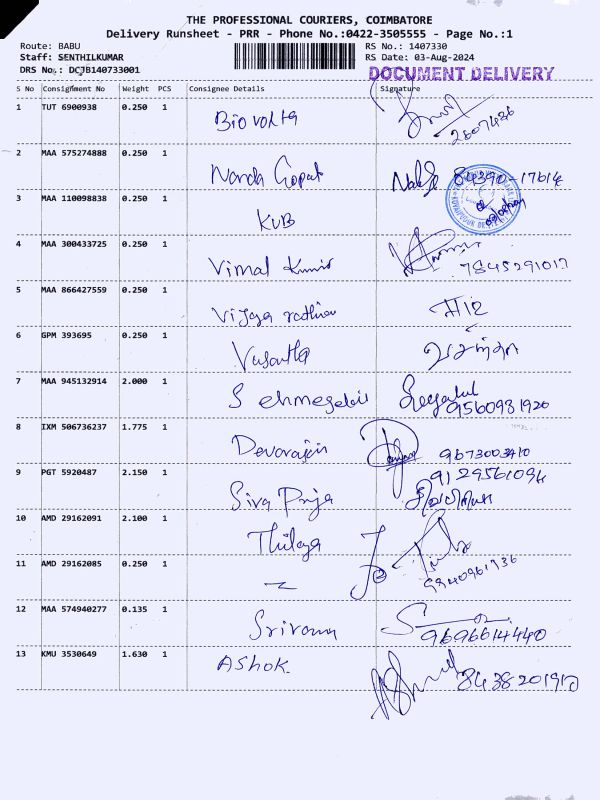 THE PROFESSIONAL COURIERS, COIMBATORE
Delivery Runsheet - PRR - Phone No.:0422-3505555 - Page No.:1
Route: BABU RS No.: 1407330
Staff: SENTHILKUMAR RS Date: 03-Aug-2024
DRS No.: DCJB140733001 DOCUMENT DELIVERY
S No Consignment No Weight PCS Consignee Details Signature
1 TUT 6900938 0.250 1 Biovolta
2607426
2 MAA 575274888 0.250 1 Nanda Gopal 84290-17614
3 MAA 110098838 0.250 1 KVB
4 MAA 300433725 0.250 1 Vimal Kumar 7845291017
5 MAA 866427559 0.250 1 Vijaya
6 GPM 393695 0.250 1 Vasantha வசந்தா
7 MAA 945132914 2.000 1 S
9560931920
8 IXM 506736237 1.775 1 Devarajan 9673003410
9 PGT 5920487 2.150 1 Siva Priya 9129561094
சிவப்பிரியா
10 AMD 29162091 2.100 1 Thilaga
11 AMD 29162085 0.250 1 9940961936
12 MAA 574940277 0.135 1 Sriram 9696614440
13 KMU 3530649 1.630 1 Ashok. 8438201910